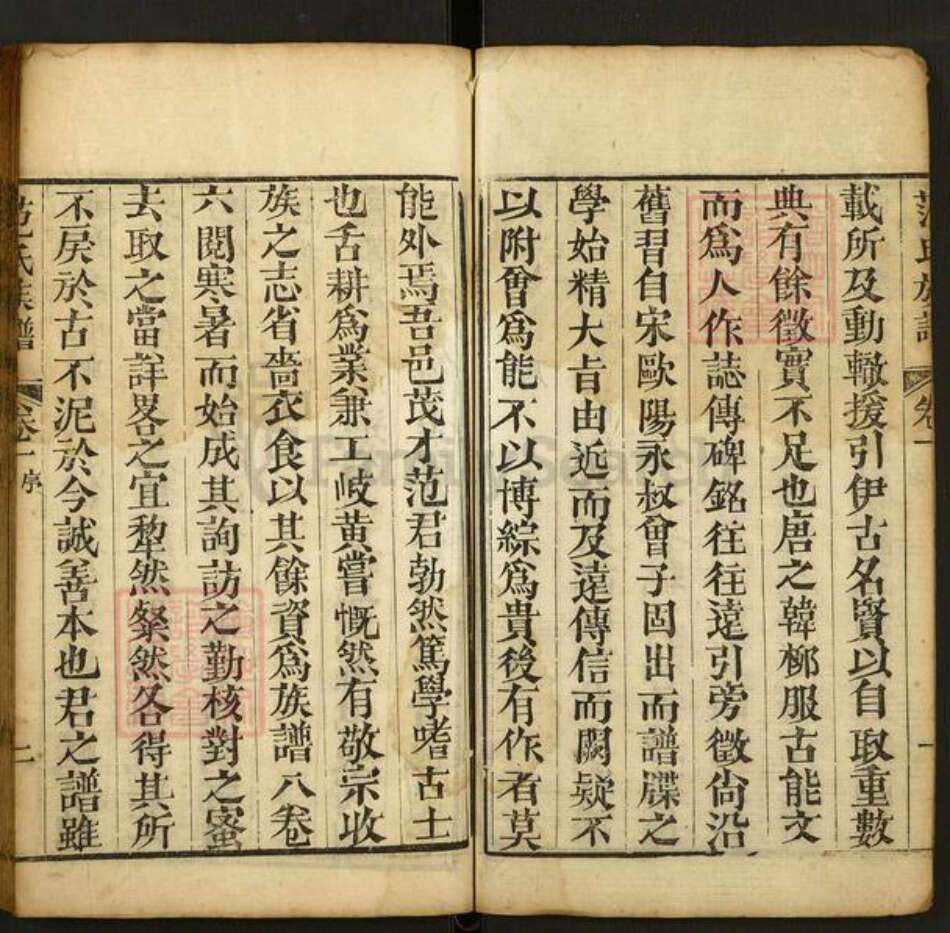 范氏族譜 卷一 一
載所及動輙援引伊古名賢以自取重數
典有餘徵實不足也唐之韓柳服古能文
而爲人作誌傳碑銘往往遠引旁徵尙沿
舊習自宋歐陽永叔曾子固出而譜牒之
學始精大旨由近而及遠傳信而闕疑不
以附會爲能不以博綜爲貴後有作者莫
能外焉吾邑茂才范君勃然篤學嗜古士
也舌耕爲業兼工岐黃嘗慨然有敬宗收
族之志省嗇衣食以其餘資爲族譜八卷
六閱寒暑而始成其詢訪之勤核對之蜜
去取之當詳畧之宜犂然粲然各得其所
不戾於古不泥於今誠善本也君之譜雖
范氏族譜 卷一 序 二